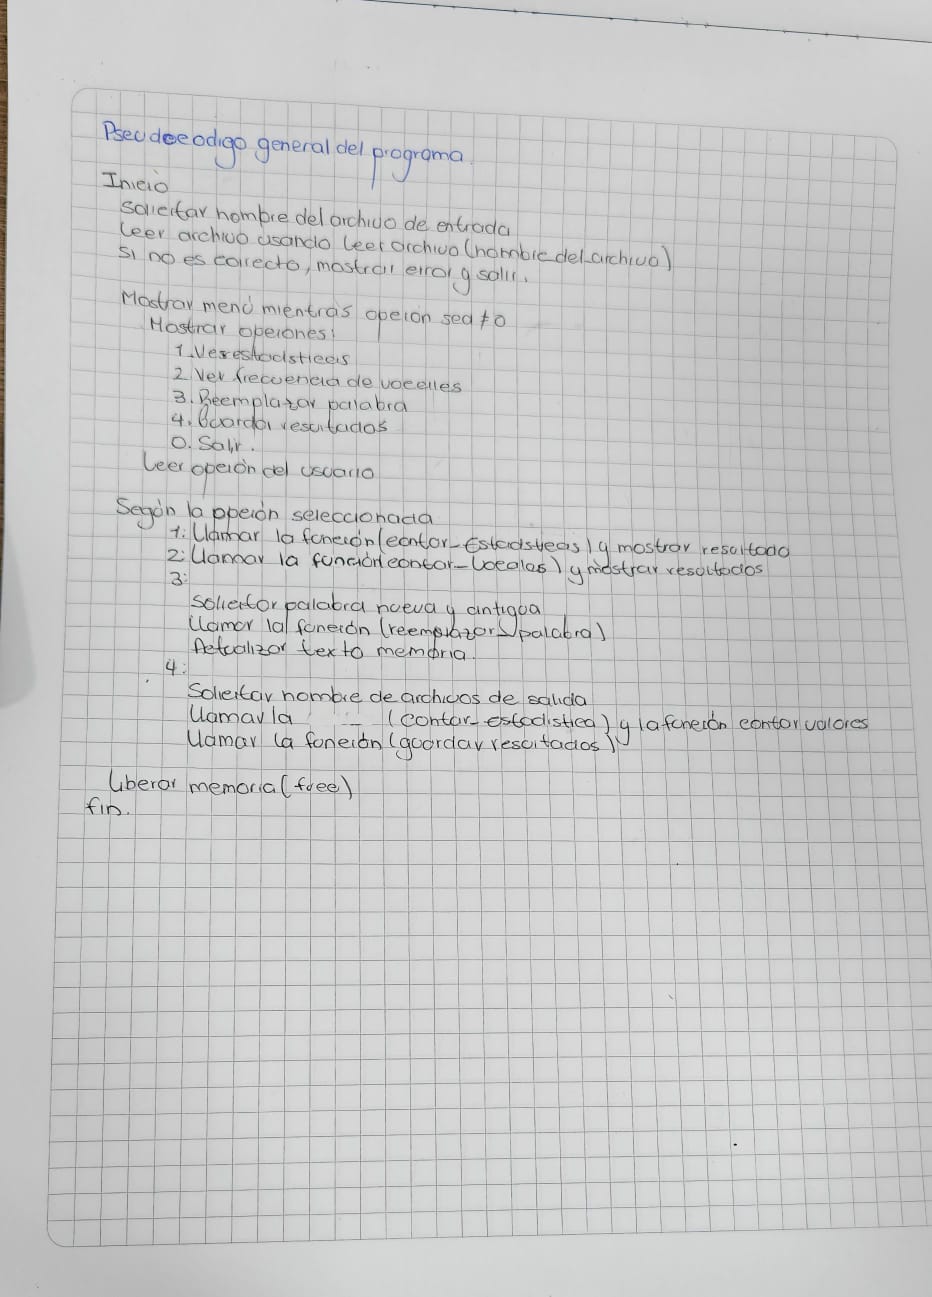 Pseudocodigo general del programa.
Inicio
Solicitar nombre del archivo de entrada
Leer archivo usando leer archivo (nombre_del_archivo)
Si no es correcto, mostrar error y salir.
Mostrar menú mientras opción sea ≠ 0
Mostrar opciones:
1. Ver estadsticas
2. Ver frecuencia de vocales
3. Reemplazar palabra
4. Guardar resultados
0. Salir.
Leer opción del usuario
Según la opción seleccionada
1: Llamar la función (contar_Estadsticas) y mostrar resultado
2: Llamar la función (contar_Vocales) y mostrar resultados
3:
Solicitar palabra nueva y antigua
Llamar la función (reemplazar_palabra)
Actualizar texto memoria.
4:
Solicitar nombre de archivos de salida
Llamar la (contar_estadistica) y la función contar valores
Llamar la función (guardar resultados)
Liberar memoria (free)
fin.